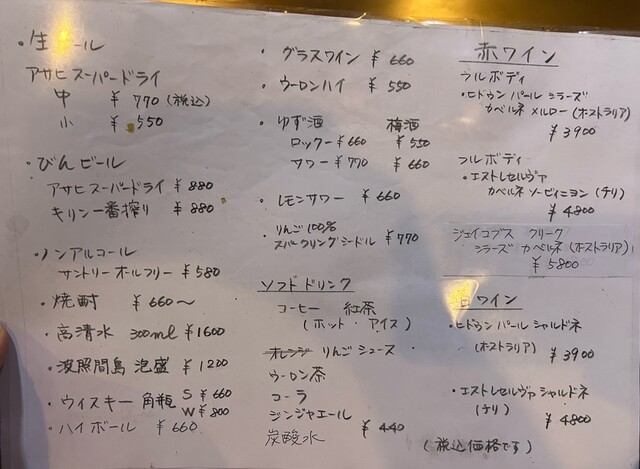 ・生ビール
アサヒスーパードライ
中 ￥770(税込)
小 ￥550
・びんビール
アサヒスーパードライ ￥880
キリン一番搾り ￥880
・ノンアルコール
サントリーオールフリー ￥580
・焼酎 ￥660〜
・高清水 300ml ￥1600
・波照間島 泡盛 ￥1200
・ウィスキー 角瓶 S ￥660
W ￥800
・ハイボール ￥660
・グラスワイン ￥660
・ウーロンハイ ￥550
・ゆず酒 梅酒
ロック ￥660 ￥550
サワー ￥770 ￥660
・レモンサワー ￥660
・りんご100%
スパークリングシードル ￥770
ソフトドリンク
コーヒー 紅茶
(ホット・アイス)
オレンジ りんごジュース
ウーロン茶
コーラ
ジンジャエール
炭酸水 ￥440
赤ワイン
フルボディ
・ヒドゥンパール シラーズ
カベルネ メルロー(オストラリア)
￥3900
フルボディ
・エストレセルヴァ
カベルネ ソービィニヨン(チリ)
￥4800
ジェイコブス クリーク
シラーズ カベルネ(オストラリア)
￥5800
白ワイン
・ヒドゥンパール シャルドネ
(オストラリア) ￥3900
・エストレセルヴァ シャルドネ
(チリ) ￥4800
(税込価格です)